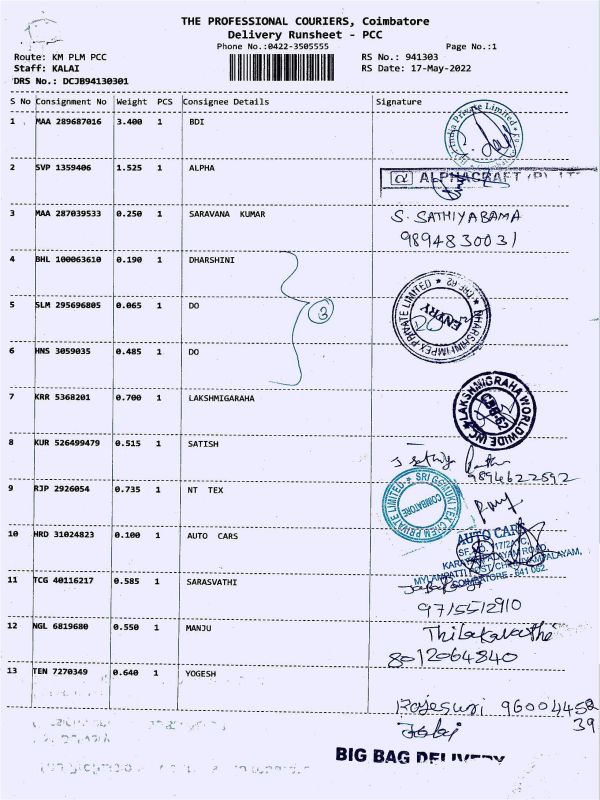 THE PROFESSIONAL COURIERS, Coimbatore
Delivery Runsheet - PCC
Phone No.:0422-3505555
Page No.:1
Route: KM PLM PCC
RS No.: 941303
Staff: KALAI
RS Date: 17-May-2022
DRS No.: DCJB94130301
S No Consignment No Weight PCS Consignee Details Signature
1 MAA 289687016 3.400 1 BDI
2 SVP 1359406 1.525 1 ALPHA
α ALPHACRAFT (P) LT
3 MAA 287039533 0.250 1 SARAVANA KUMAR S. SATHIYABAMA
9894830031
4 BHL 100063610 0.190 1 DHARSHINI
5 SLM 295696805 0.065 1 DO
3
ENTRY
6 HNS 3059035 0.485 1 DO
7 KRR 5368201 0.700 1 LAKSHMIGARAHA
LAKSHMIGRAHA WORLDWIDE INC
CBE-62
8 KUR 526499479 0.515 1 SATISH
9894622592
9 RJP 2926054 0.735 1 NT TEX
COIMBATORE
10 HRD 31024823 0.100 1 AUTO CARS
AUTO CARS
11 TCG 40116217 0.585 1 SARASVATHI
COIMBATORE - 641 062.
9715512910
12 NGL 6819680 0.550 1 MANJU Thilakavathi
8012064840
13 TEN 7270349 0.640 1 YOGESH
Rajesuri 96004452
39
BIG BAG DELIVERY